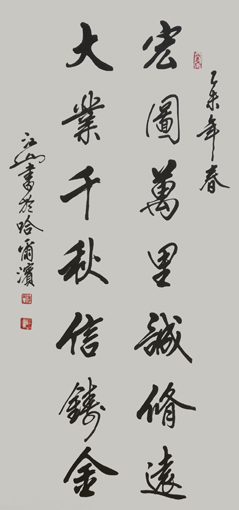 乙未年春
宏圖萬里誠脩遠
大業千秋信鑄金
书於哈爾濱